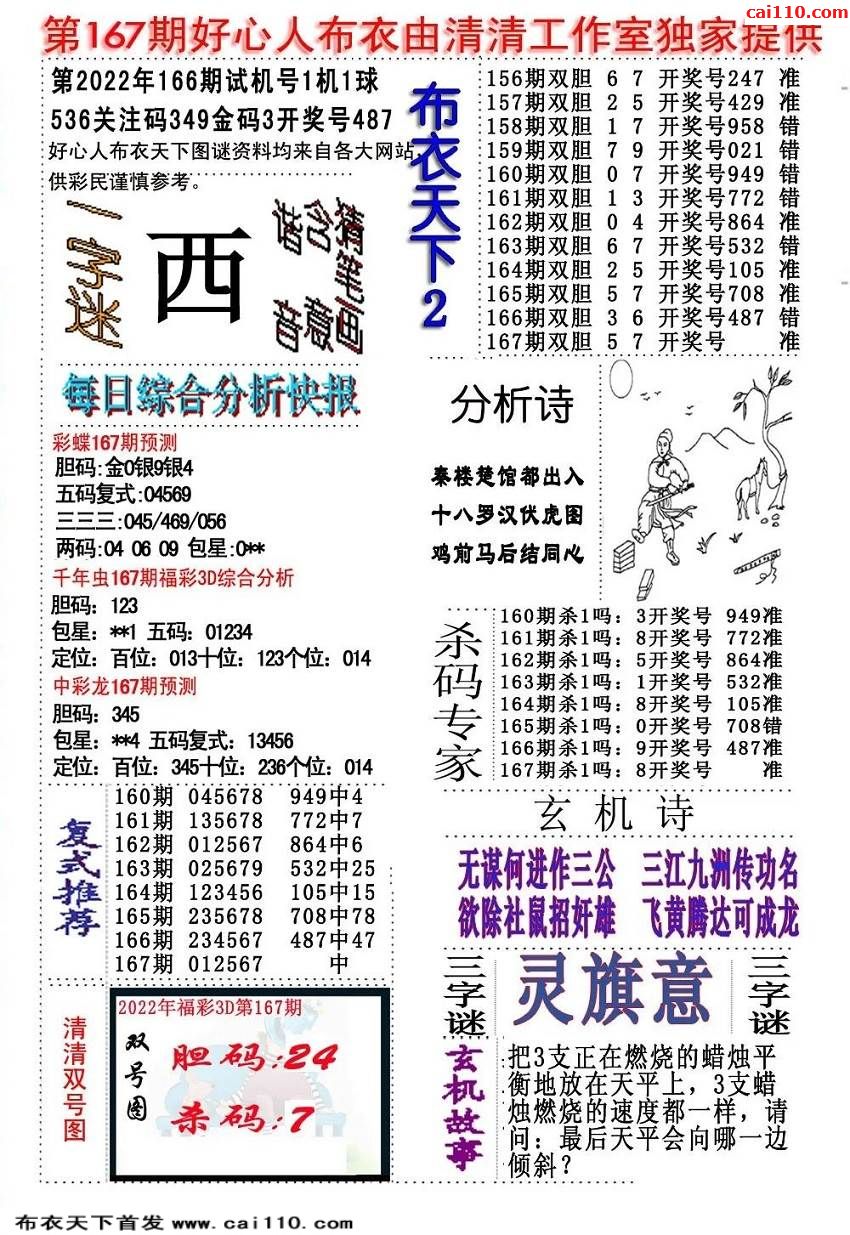 cai110.com
第167期好心人布衣由清清工作室独家提供
第2022年166期试机号1机1球
536关注码349金码3开奖号487
好心人布衣天下图谜资料均来自各大网站,
供彩民谨慎参考。
一字迷
西
猜笔画
含意
谐音
布衣天下2
156期双胆 6 7 开奖号247 准
157期双胆 2 5 开奖号429 准
158期双胆 1 7 开奖号958 错
159期双胆 7 9 开奖号021 错
160期双胆 0 7 开奖号949 错
161期双胆 1 3 开奖号772 错
162期双胆 0 4 开奖号864 准
163期双胆 6 7 开奖号532 错
164期双胆 2 5 开奖号105 准
165期双胆 5 7 开奖号708 准
166期双胆 3 6 开奖号487 错
167期双胆 5 7 开奖号 准
每日综合分析快报
彩蝶167期预测
胆码:金0银9银4
五码复式:04569
三三三:045/469/056
两码:04 06 09 包星:0**
千年虫167期福彩3D综合分析
胆码: 123
包星: **1 五码: 01234
定位: 百位: 013十位: 123个位: 014
中彩龙167期预测
胆码: 345
包星: **4 五码复式: 13456
定位: 百位: 345十位: 236个位: 014
分析诗
秦楼楚馆都出入
十八罗汉伏虎图
鸡前马后结同心
杀码专家
160期杀1吗: 3开奖号 949准
161期杀1吗: 8开奖号 772准
162期杀1吗: 5开奖号 864准
163期杀1吗: 1开奖号 532准
164期杀1吗: 8开奖号 105准
165期杀1吗: 0开奖号 708错
166期杀1吗: 9开奖号 487准
167期杀1吗: 8开奖号 准
复式推荐
160期 045678 949中4
161期 135678 772中7
162期 012567 864中6
163期 025679 532中25
164期 123456 105中15
165期 235678 708中78
166期 234567 487中47
167期 012567 中
玄机诗
无谋何进作三公 三江九洲传功名
欲除社鼠招奸雄 飞黄腾达可成龙
三字谜
灵旗意
三字谜
清清双号图
2022年福彩3D第167期
双号图
胆码:24
杀码:7
玄机故事
把3支正在燃烧的蜡烛平
衡地放在天平上，3支蜡
烛燃烧的速度都一样，请
问：最后天平会向哪一边
倾斜？
布衣天下首发 www.cai110.com